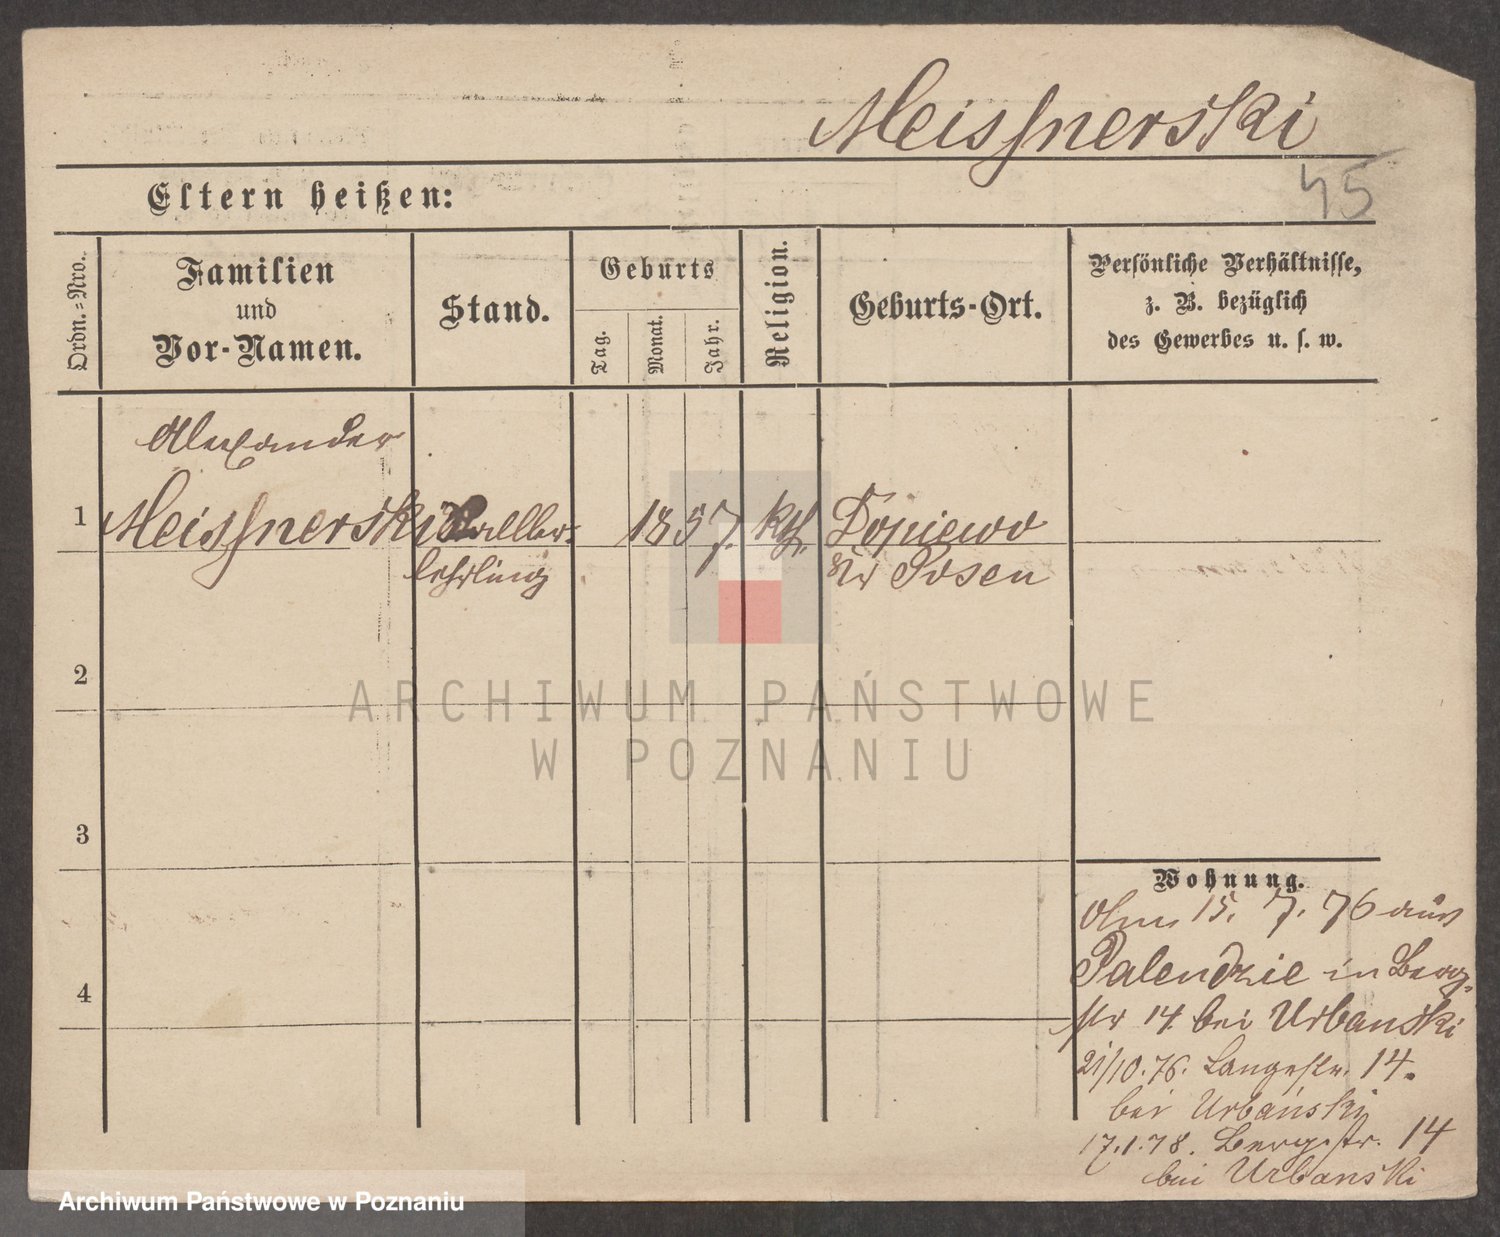 Meissnerski
45
Eltern heißen:
Ordn.-Nro.
Familien
und
Vor-Namen.
Stand.
Geburts
Tag.
Monat.
Jahr.
Religion.
Geburts-Ort.
Persönliche Verhältnisse,
z. B. bezüglich
des Gewerbes u. s. w.
Alexander
1
Meissnerski
lehrling
1857.
kth.
Dopiewo
Kr Posen
2
ARCHIWUM PAŃSTWOWE
W POZNANIU
3
Wohnung.
15. 7. 76 aus
Palendzie in Berg-
str 14. bei Urbanski
4
21/10. 76. Langestr. 14.
bei Urbański
17.1.78. Bergstr. 14
bei Urbanski
Archiwum Państwowe w Poznaniu